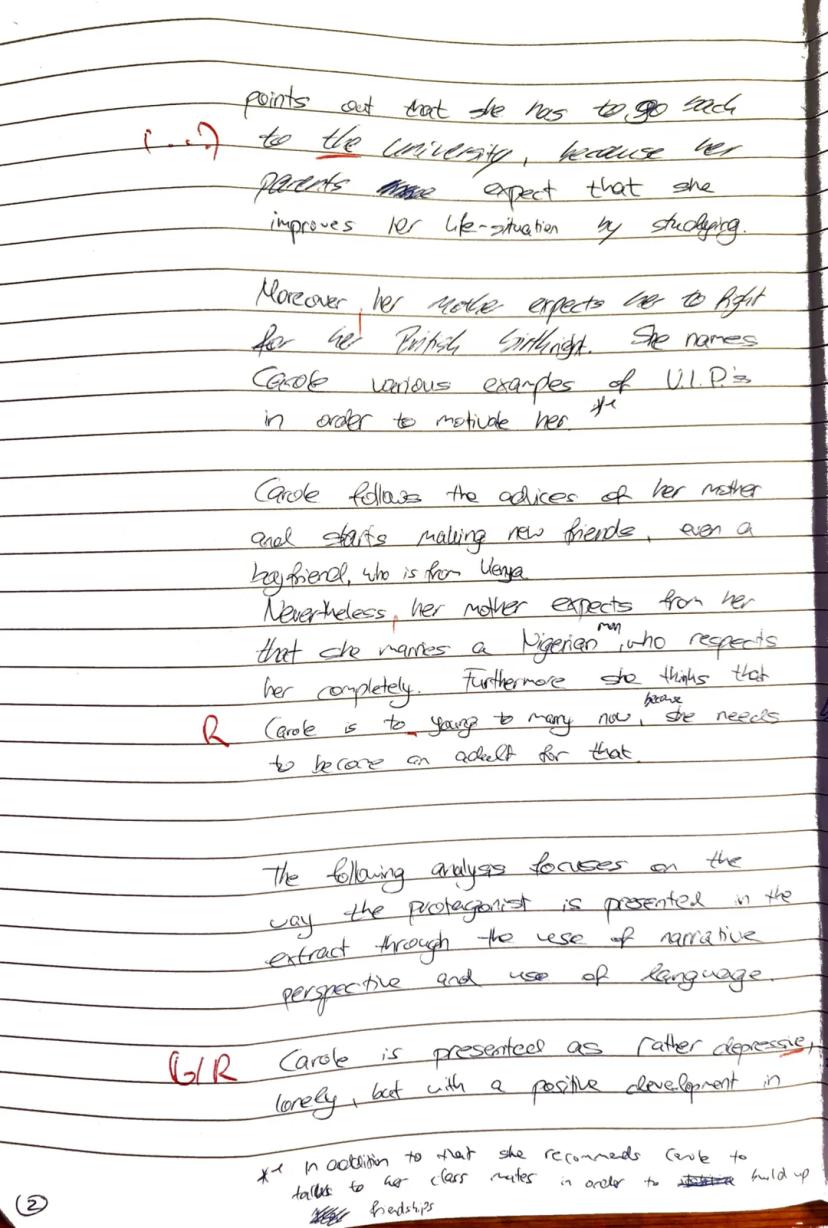 points out that she has to go back
(...) to the university, because her
parents expect that she
improves her life-situation by studying.
Moreover, her mother expects her to fight
for her British birthright. She names
Carole various examples of V.I.P.'s
in order to motivate her. **
Carole follows the advices of her mother
and starts making new friends, even a
boyfriend, who is from Kenya
Nevertheless, her mother expects from her
that she marries a Nigerian man, who respects
her completely. Furthermore she thinks that
R Carole is to young to marry now, because she needs
to become an adult for that.
The following analysis focuses on the
way the protagonist is presented in the
extract through the use of narrative
perspective and use of language.
G/R Carole is presented as rather depressie,
lonely, but with a positive development in
** In addition to that she recommends Carole to
talks to her class mates in order to build up
friendships
2